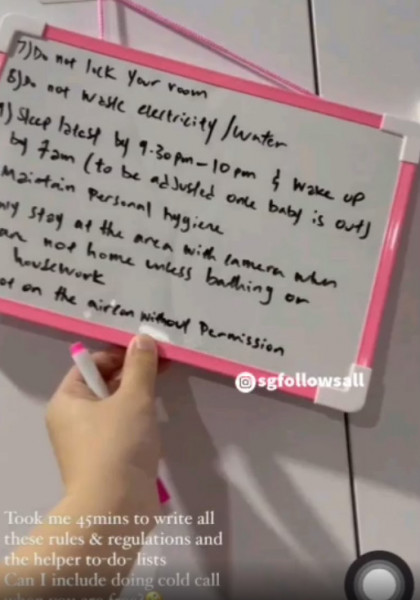 7) Do not lock your room
8) Do not waste electricity / water
9) Sleep latest by 9.30pm - 10pm & wake up
by 7am (to be adjusted once baby is out)
Maintain Personal hygiene
stay at the area with camera when
not home unless bathing or
housework
on the aircon without Permission
sgfollowsall
Took me 45mins to write all
these rules & regulations and
the helper to-do- lists
Can I include doing cold call
when you are free?